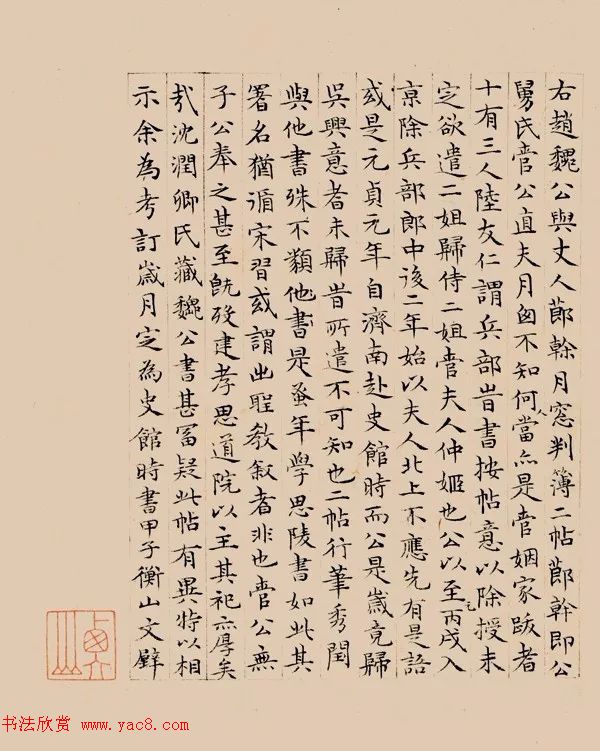 右趙魏公與丈人節幹月窓判簿二帖節幹即公
舅氏管公直夫月囪不知何人當亦是管姻家跋者
十有三人陸友仁謂兵部時書按帖意以除授未
定欲遣二姐歸侍二姐管夫人仲姬也公以至元丙戌入
京除兵部郎中後二年始以夫人北上不應先有是語
或是元貞元年自濟南赴史館時而公是歲竟歸
吳興意者未歸時所遣不可知也二帖行筆秀閏
與他書殊不類他書是蚤年學思陵書如此其
署名猶循宋習或謂出聖教敘者非也管公無
子公奉之甚至既歿建孝思道院以主其祀亦厚矣
哉沈潤卿氏藏魏公書甚富疑此帖有異特以相
示余為考訂歲月定為史館時書甲子衡山文壁
书法欣赏 www.yac8.com